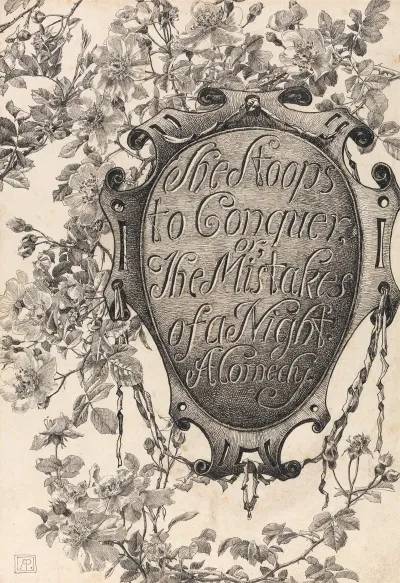 She Stoops
to Conquer,
or,
The Mistakes
of a Night.
A Comedy.